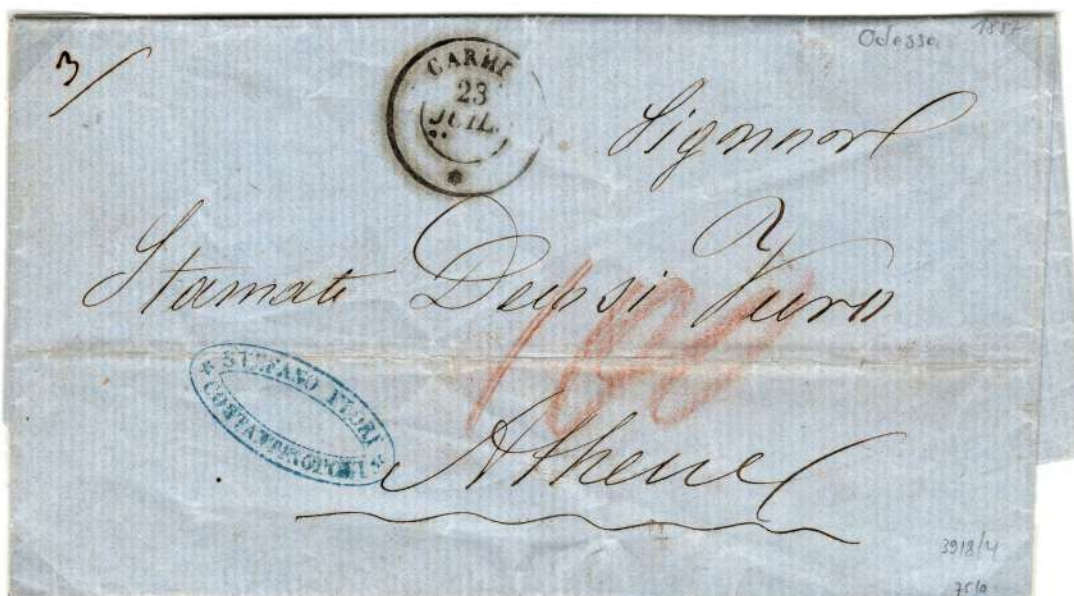 Odessa 1857
3
CARMI
23
JUIL.
Signore
Stamati
100
* STEFANO FIORI *
COSTANTINOPOLI
Athene
3918/4